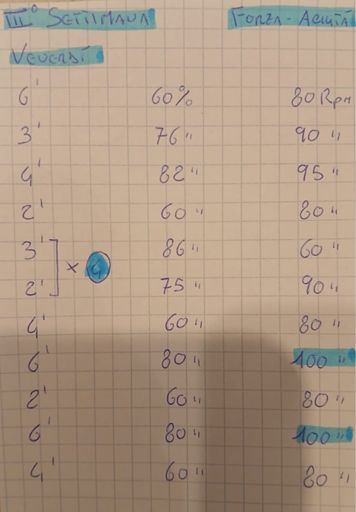 III° SETTIMANA FORZA - AGILITÀ
VENERDÌ
6' 60% 80 Rpm
3' 76 " 90 "
4' 82 " 95 "
2' 60 " 80 "
3' 86 " 60 "
x 4
2' 75 " 90 "
4' 60 " 80 "
6' 80 " 100 "
2' 60 " 80 "
6' 80 " 100 "
4' 60 " 80 "